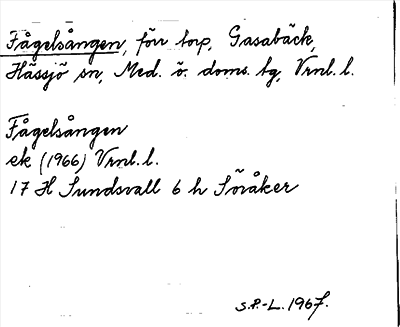 Fågelsången, förr torp, Gasabäck,
Hässjö sn, Med. ö. doms. tg, Vrnl. l.
Fågelsången
ek (1966) Vrnl. l.
17 H Sundsvall 6 h Söråker
S.P.-L. 1967.